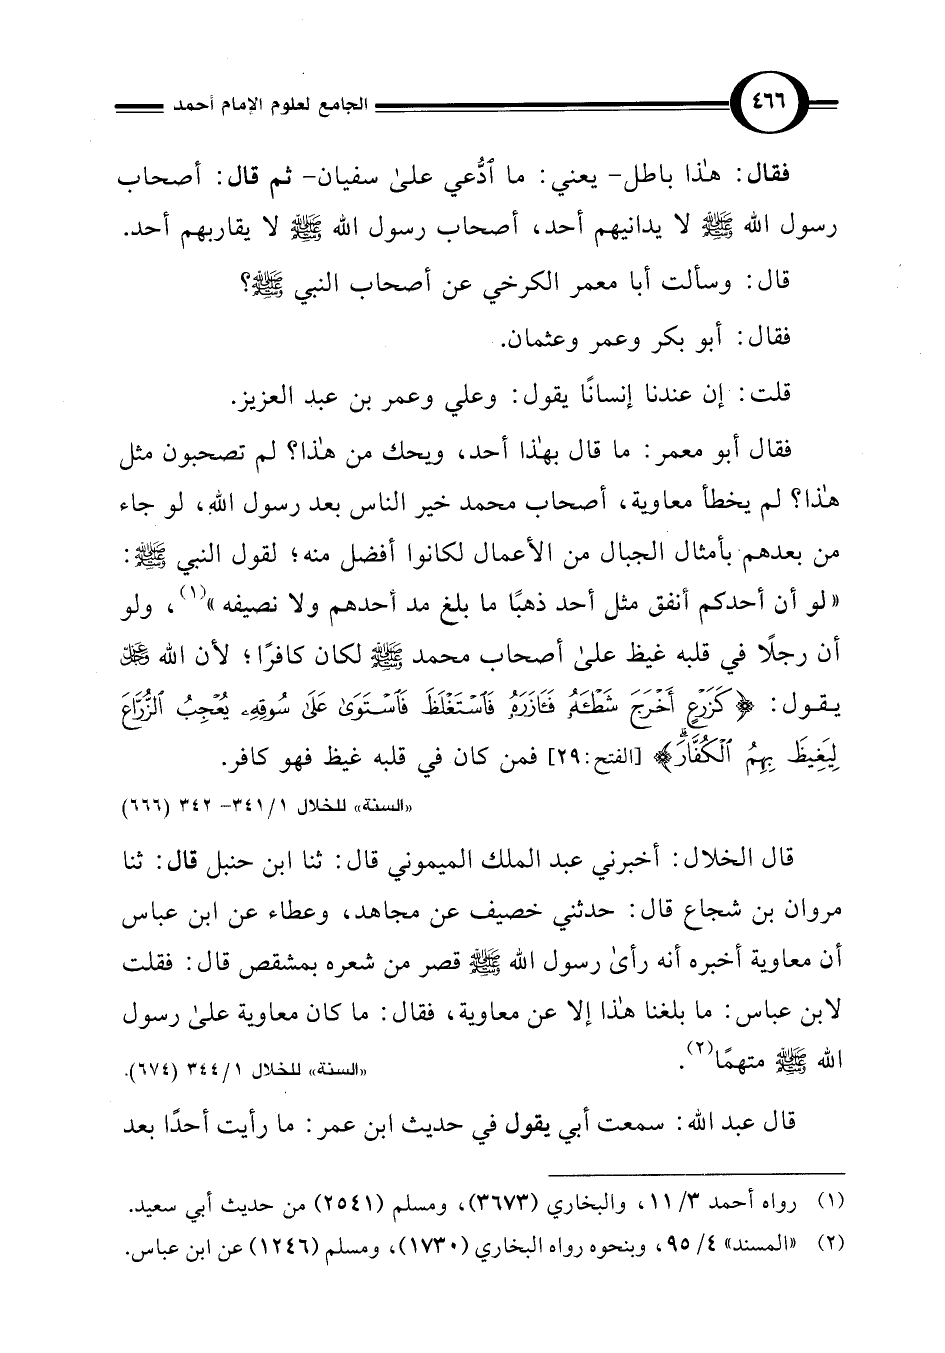 ٤٦٦ الجامع لعلوم الإمام أحمد
فقال: هذا باطل- يعني: ما ٱدُّعي علىٰ سفيان- ثم قال: أصحاب
رسول الله ﷺ لا يدانيهم أحد، أصحاب رسول الله ﷺ لا يقاربهم أحد.
قال: وسألت أبا معمر الكرخي عن أصحاب النبي ﷺ؟
فقال: أبو بكر وعمر وعثمان.
قلت: إن عندنا إنسانًا يقول: وعلي وعمر بن عبد العزيز.
فقال أبو معمر: ما قال بهٰذا أحد، ويحك من هٰذا؟ لم تصحبون مثل
هٰذا؟ لم يخطأ معاوية، أصحاب محمد خير الناس بعد رسول الله، لو جاء
من بعدهم بأمثال الجبال من الأعمال لكانوا أفضل منه؛ لقول النبي ﷺ:
«لو أن أحدكم أنفق مثل أحد ذهبًا ما بلغ مد أحدهم ولا نصيفه»(١)، ولو
أن رجلًا في قلبه غيظ علىٰ أصحاب محمد ﷺ لكان كافرًا؛ لأن الله ﷻ
يقول: ﴿كَزَرْعٍ أَخْرَجَ شَطْـَٔهُۥ فَـَٔازَرَهُۥ فَٱسْتَغْلَظَ فَٱسْتَوَىٰ عَلَىٰ سُوقِهِۦ يُعْجِبُ ٱلزُّرَّاعَ
لِيَغِيظَ بِهِمُ ٱلْكُفَّارَۗ﴾ [الفتح:٢٩] فمن كان في قلبه غيظ فهو كافر.
«السنة» للخلال ١/ ٣٤١- ٣٤٢ (٦٦٦)
قال الخلال: أخبرني عبد الملك الميموني قال: ثنا ابن حنبل قال: ثنا
مروان بن شجاع قال: حدثني خصيف عن مجاهد، وعطاء عن ابن عباس
أن معاوية أخبره أنه رأىٰ رسول الله ﷺ قصر من شعره بمشقص قال: فقلت
لابن عباس: ما بلغنا هٰذا إلا عن معاوية، فقال: ما كان معاوية علىٰ رسول
الله ﷺ متهمًا(٢). «السنة» للخلال ١/ ٣٤٤ (٦٧٤).
قال عبد الله: سمعت أبي يقول في حديث ابن عمر: ما رأيت أحدًا بعد
(١) رواه أحمد ٣/ ١١، والبخاري (٣٦٧٣)، ومسلم (٢٥٤١) من حديث أبي سعيد.
(٢) «المسند» ٤/ ٩٥، وبنحوه رواه البخاري (١٧٣٠)، ومسلم (١٢٤٦) عن ابن عباس.